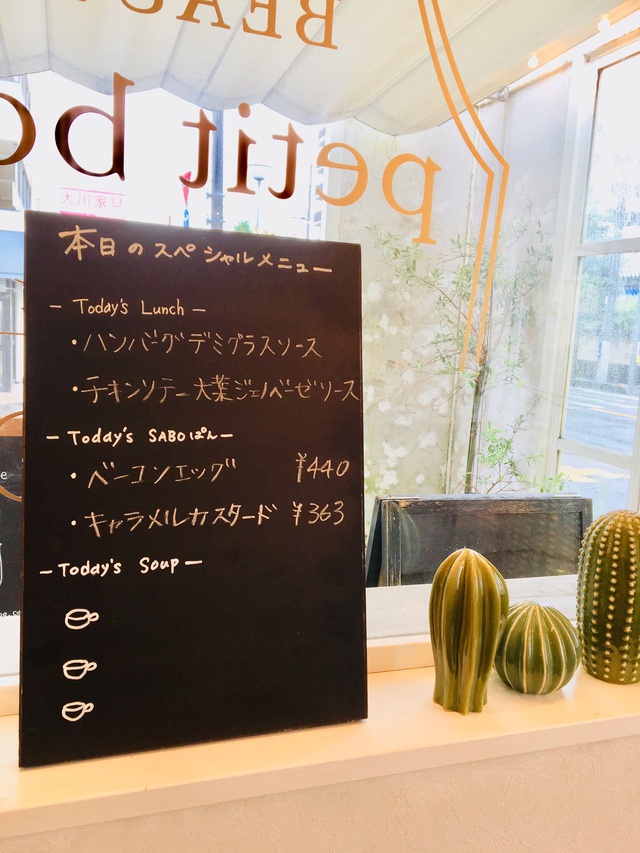 BEAU
petit bo
大川家具
本日のスペシャルメニュー
- Today's Lunch -
・ハンバーグデミグラスソース
・チキンソテー大葉ジェノベーゼソース
- Today's SABOぱん -
・ベーコンエッグ ¥440
・キャラメルカスタード ¥363
- Today's Soup -